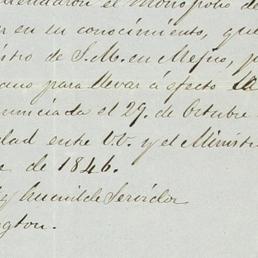 endaron el Monopolio de
er en su conocimiento, que
stro de S. M. en Mejico, p
ano para llevar á efecto la
unciada el 29. de Octubre
dad entre V.V. y el Ministr
e de 1846.
y humilde Servidor
ngton.